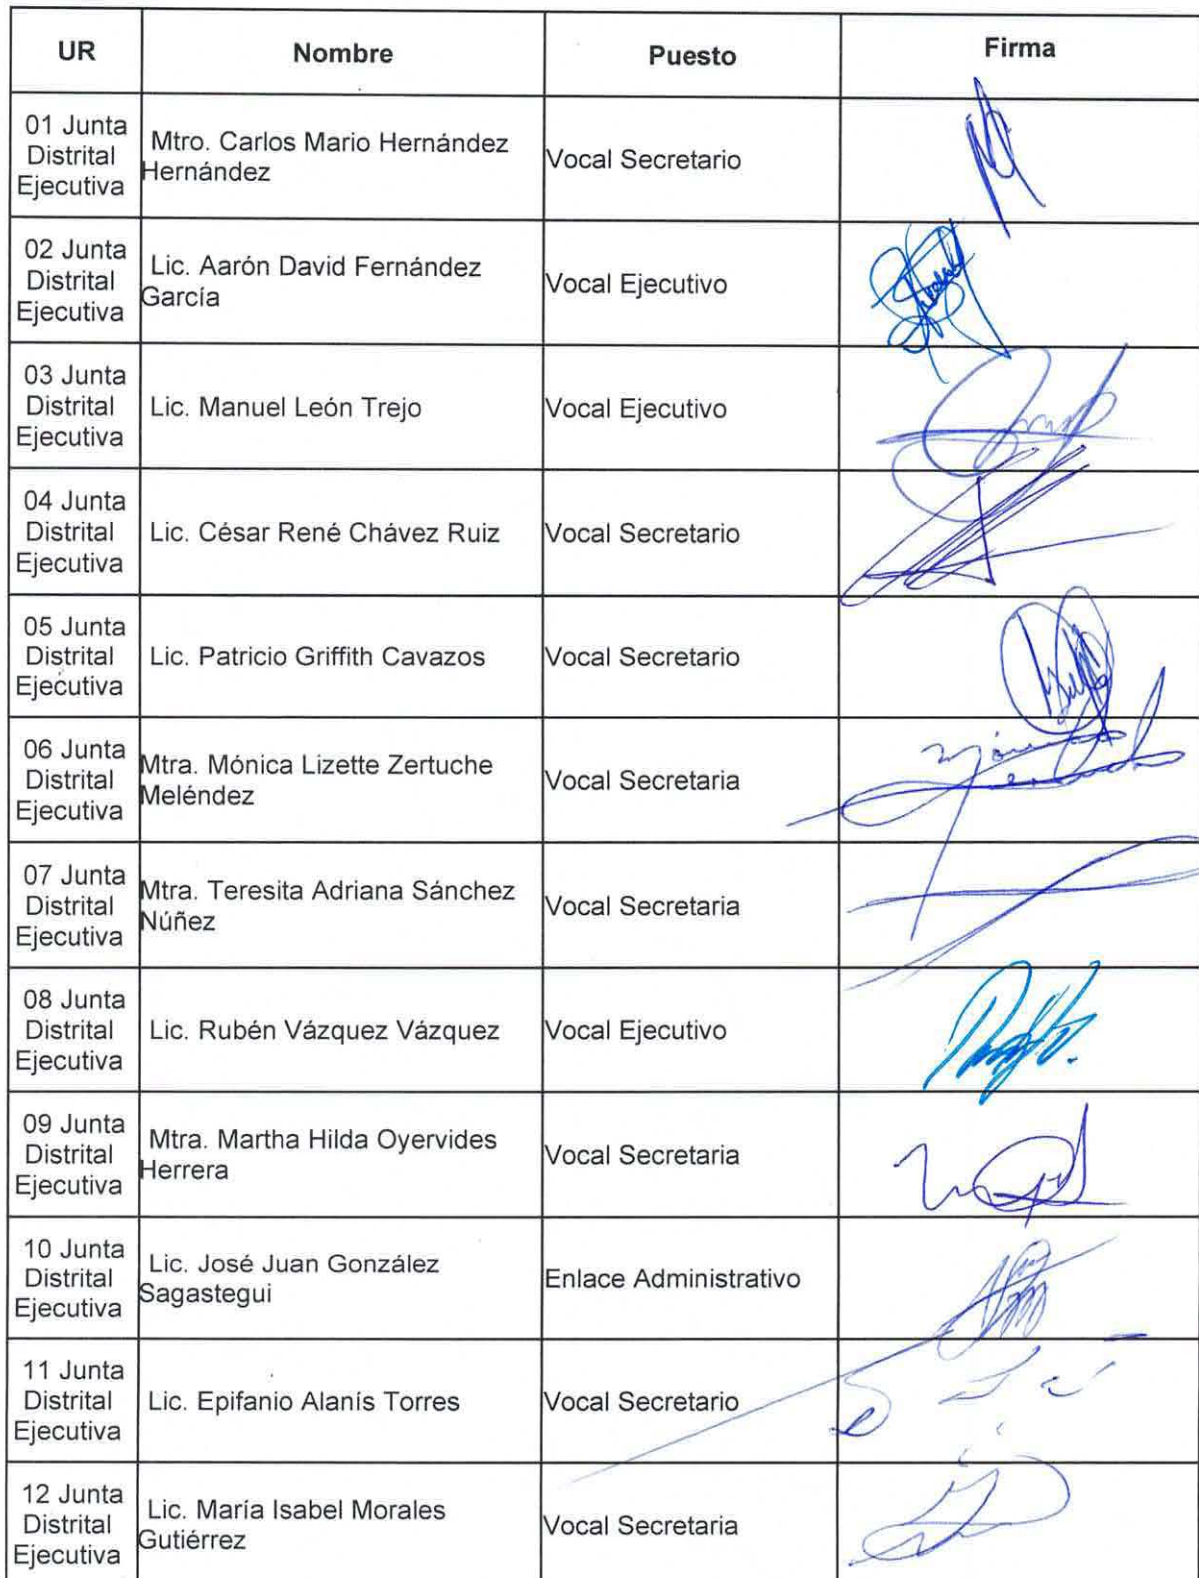 UR Nombre Puesto Firma
01 Junta
Distrital
Ejecutiva
Mtro. Carlos Mario Hernández
Hernández
Vocal Secretario
02 Junta
Distrital
Ejecutiva
Lic. Aarón David Fernández
García
Vocal Ejecutivo
03 Junta
Distrital
Ejecutiva
Lic. Manuel León Trejo
Vocal Ejecutivo
04 Junta
Distrital
Ejecutiva
Lic. César René Chávez Ruiz
Vocal Secretario
05 Junta
Distrital
Ejecutiva
Lic. Patricio Griffith Cavazos
Vocal Secretario
06 Junta
Distrital
Ejecutiva
Mtra. Mónica Lizette Zertuche
Meléndez
Vocal Secretaria
07 Junta
Distrital
Ejecutiva
Mtra. Teresita Adriana Sánchez
Núñez
Vocal Secretaria
08 Junta
Distrital
Ejecutiva
Lic. Rubén Vázquez Vázquez
Vocal Ejecutivo
09 Junta
Distrital
Ejecutiva
Mtra. Martha Hilda Oyervides
Herrera
Vocal Secretaria
10 Junta
Distrital
Ejecutiva
Lic. José Juan González
Sagastegui
Enlace Administrativo
11 Junta
Distrital
Ejecutiva
Lic. Epifanio Alanís Torres
Vocal Secretario
12 Junta
Distrital
Ejecutiva
Lic. María Isabel Morales
Gutiérrez
Vocal Secretaria